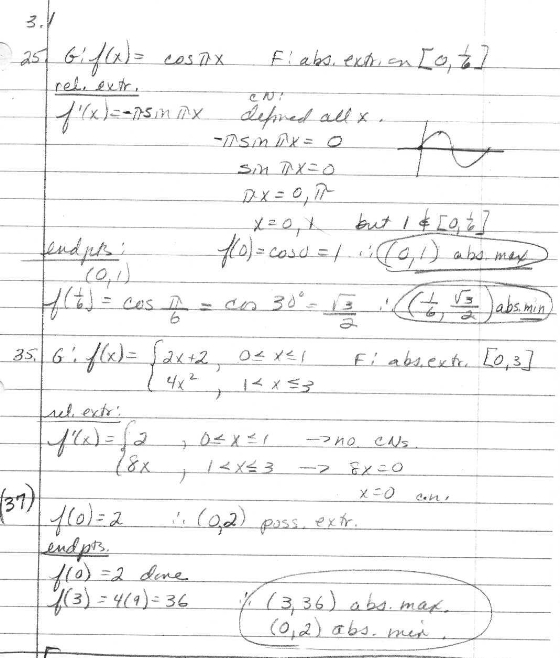 3.1
25. G: f(x) = cos πx   F: abs. extr. on [0, 1/6]
rel. extr.
f'(x) = -π sin πx   CN: defined all x.
-π sin πx = 0
sin πx = 0
πx = 0, π
x = 0, 1   but 1 ∉ [0, 1/6]
endpts:   f(0) = cos 0 = 1 ∴ (0,1) abs. max
(0,1)
f(1/6) = cos π/6 = cos 30° = √3/2 ∴ (1/6, √3/2) abs. min
35. G: f(x) = { 2x+2, 0 ≤ x ≤ 1   F: abs. extr. [0,3]
4x², 1 < x ≤ 3
rel. extr:
f'(x) = { 2, 0 ≤ x ≤ 1 → no CNs.
8x, 1 < x ≤ 3 → 8x = 0
x = 0 c.n.
(37)
f(0) = 2 ∴ (0,2) poss. extr.
endpts.
f(0) = 2 done
f(3) = 4(9) = 36 ∴ (3,36) abs. max.
(0,2) abs. min.